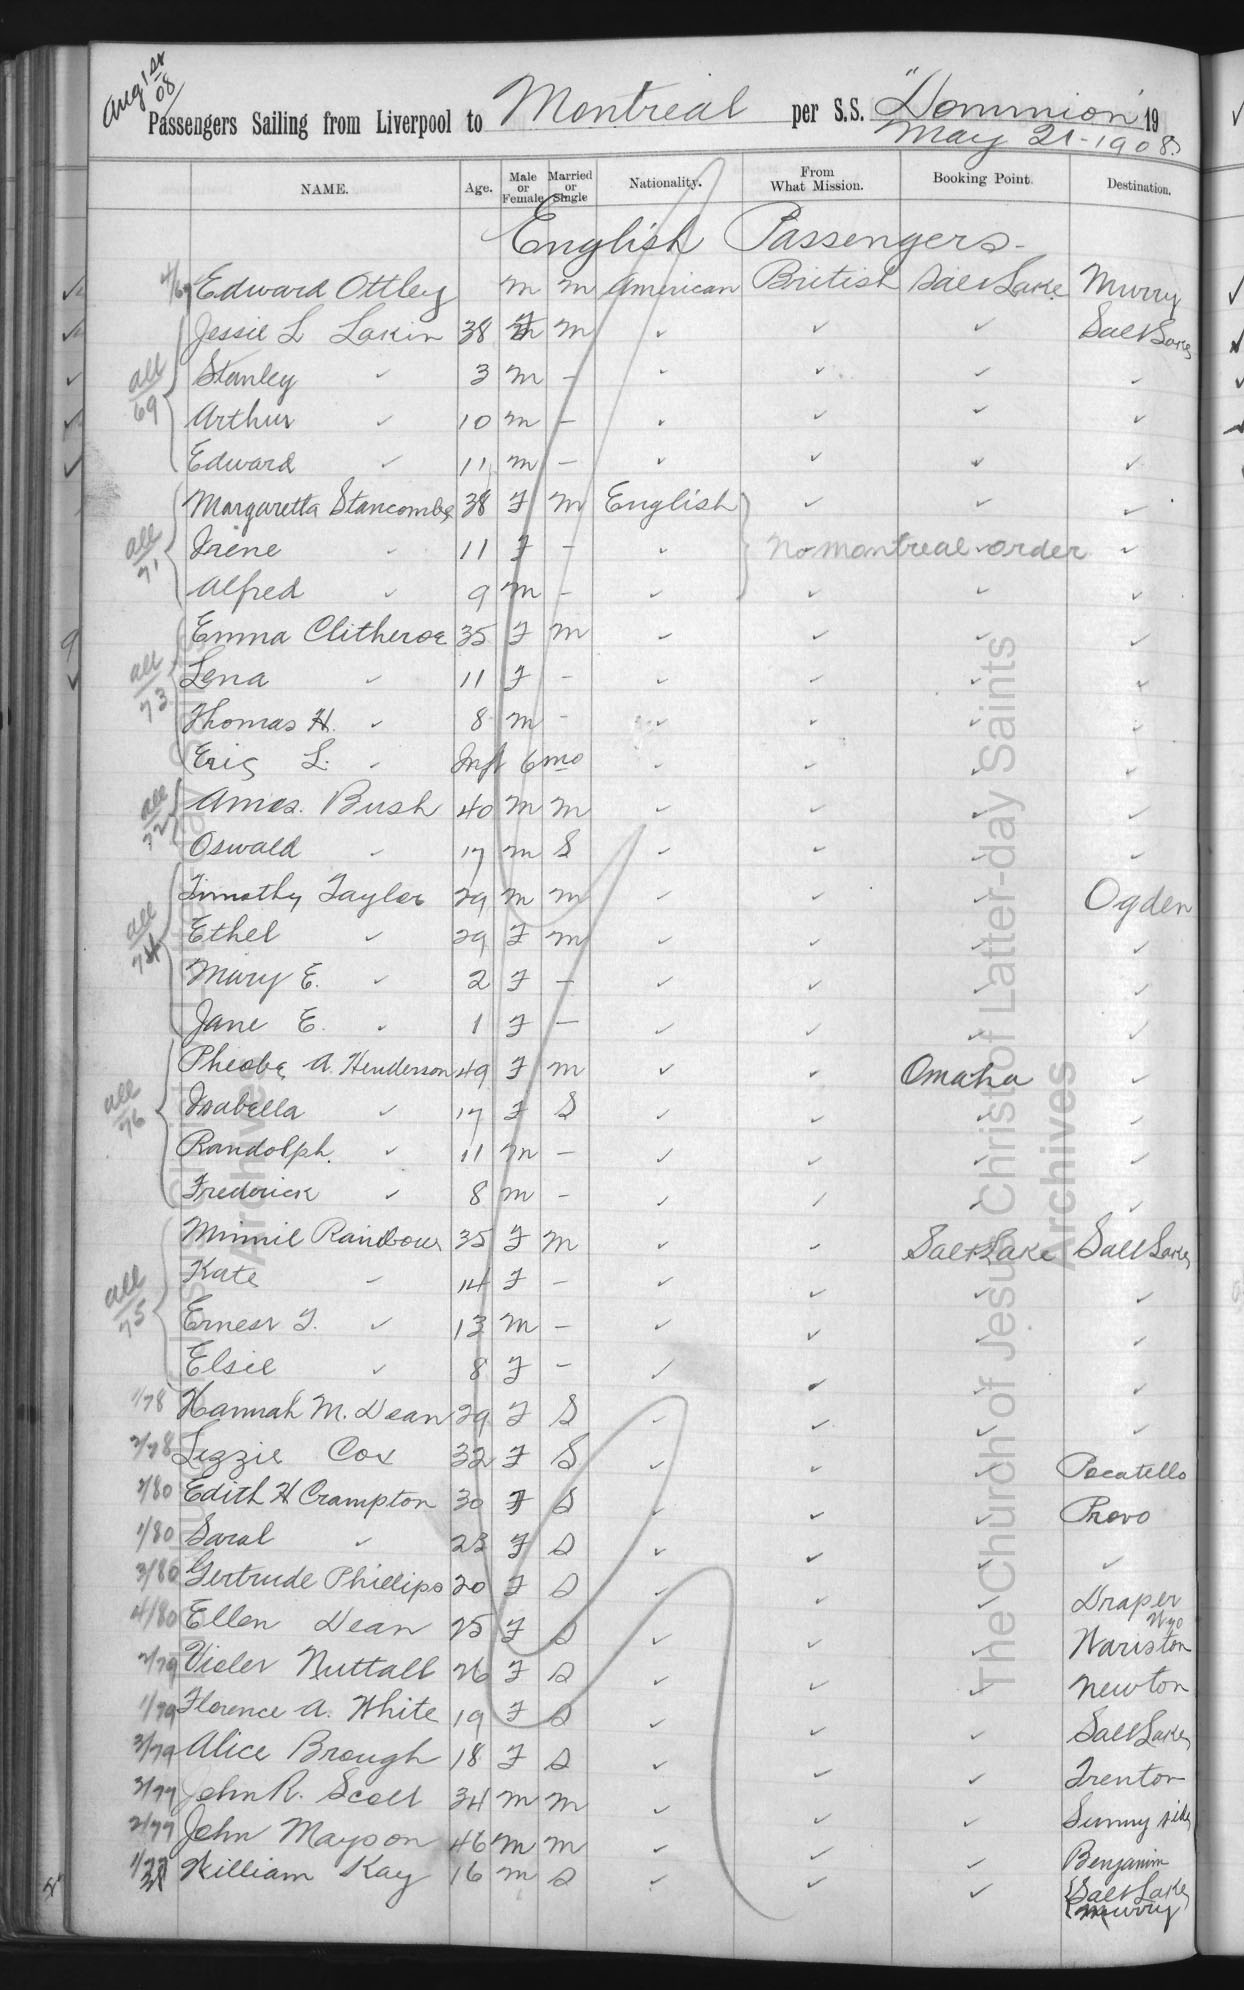 Aug 1st 08
Passengers Sailing from Liverpool to Montreal per S.S. "Dominion" 19
May 21 - 1908.
NAME. Age. Male or Female Married or Single Nationality. From What Mission. Booking Point. Destination.
English Passengers-
4/69 Edward Ottley m m American British Salt Lake Murry
Jessie L Lakin 38 F m ✓ ✓ ✓ Salt Lake
all 69 Stanley ✓ 3 m - ✓ ✓ ✓ ✓
Arthur ✓ 10 m - ✓ ✓ ✓ ✓
Edward ✓ 11 m - ✓ ✓ ✓ ✓
Margaretta Stancombe 38 F m English ✓ ✓ ✓
all 71 Irene ✓ 11 F - ✓ No montreal order ✓
Alfred ✓ 9 m - ✓ ✓ ✓ ✓
Emma Clitheroe 35 F m ✓ ✓ ✓ ✓
all 73 Lena ✓ 11 F - ✓ ✓ ✓ ✓
Thomas H. ✓ 8 m - ✓ ✓ ✓ ✓
Eric L. ✓ Inft 6 mo ✓ ✓ ✓ ✓
all 72 Amos. Bush 40 m m ✓ ✓ ✓ ✓
Oswald ✓ 17 m S ✓ ✓ ✓ ✓
Timothy Taylor 29 m m ✓ ✓ ✓ Ogden
all 74 Ethel ✓ 29 F m ✓ ✓ ✓ ✓
Mary E. ✓ 2 F - ✓ ✓ ✓ ✓
Jane E. ✓ 1 F - ✓ ✓ ✓ ✓
Pheobe A. Henderson 49 F m ✓ ✓ Omaha ✓
all 76 Isabella ✓ 17 F S ✓ ✓ ✓ ✓
Randolph. ✓ 11 m - ✓ ✓ ✓ ✓
Frederick ✓ 8 m - ✓ ✓ ✓ ✓
Minnie Rainbow 35 F m ✓ ✓ Salt Lake Salt Lake
all 75 Kate ✓ 14 F - ✓ ✓ ✓ ✓
Ernest T. ✓ 13 m - ✓ ✓ ✓ ✓
Elsie ✓ 8 F - ✓ ✓ ✓ ✓
1/78 Hannah M. Dean 29 F S ✓ ✓ ✓ ✓
2/78 Lizzie Cox 32 F S ✓ ✓ ✓ Pocatello
2/80 Edith H Crampton 30 F S ✓ ✓ ✓ Provo
1/80 Sarah ✓ 23 F S ✓ ✓ ✓ ✓
3/80 Gertrude Phillips 20 F S ✓ ✓ ✓ Draper
4/80 Ellen Dean 25 F S ✓ ✓ ✓ Wyo
2/79 Violet Nuttall 26 F S ✓ ✓ ✓ Newton
1/79 Florence A. White 19 F S ✓ ✓ ✓ Salt Lake
3/79 Alice Brough 18 F S ✓ ✓ ✓ Trenton
3/77 John R. Scott 34 m m ✓ ✓ ✓ Sunny side
2/77 John Mayson 46 m m ✓ ✓ ✓ Benjamin
1/77 William Kay 16 m S ✓ ✓ ✓ Salt Lake
Murry
The Church of Jesus Christ of Latter-day Saints
Archives